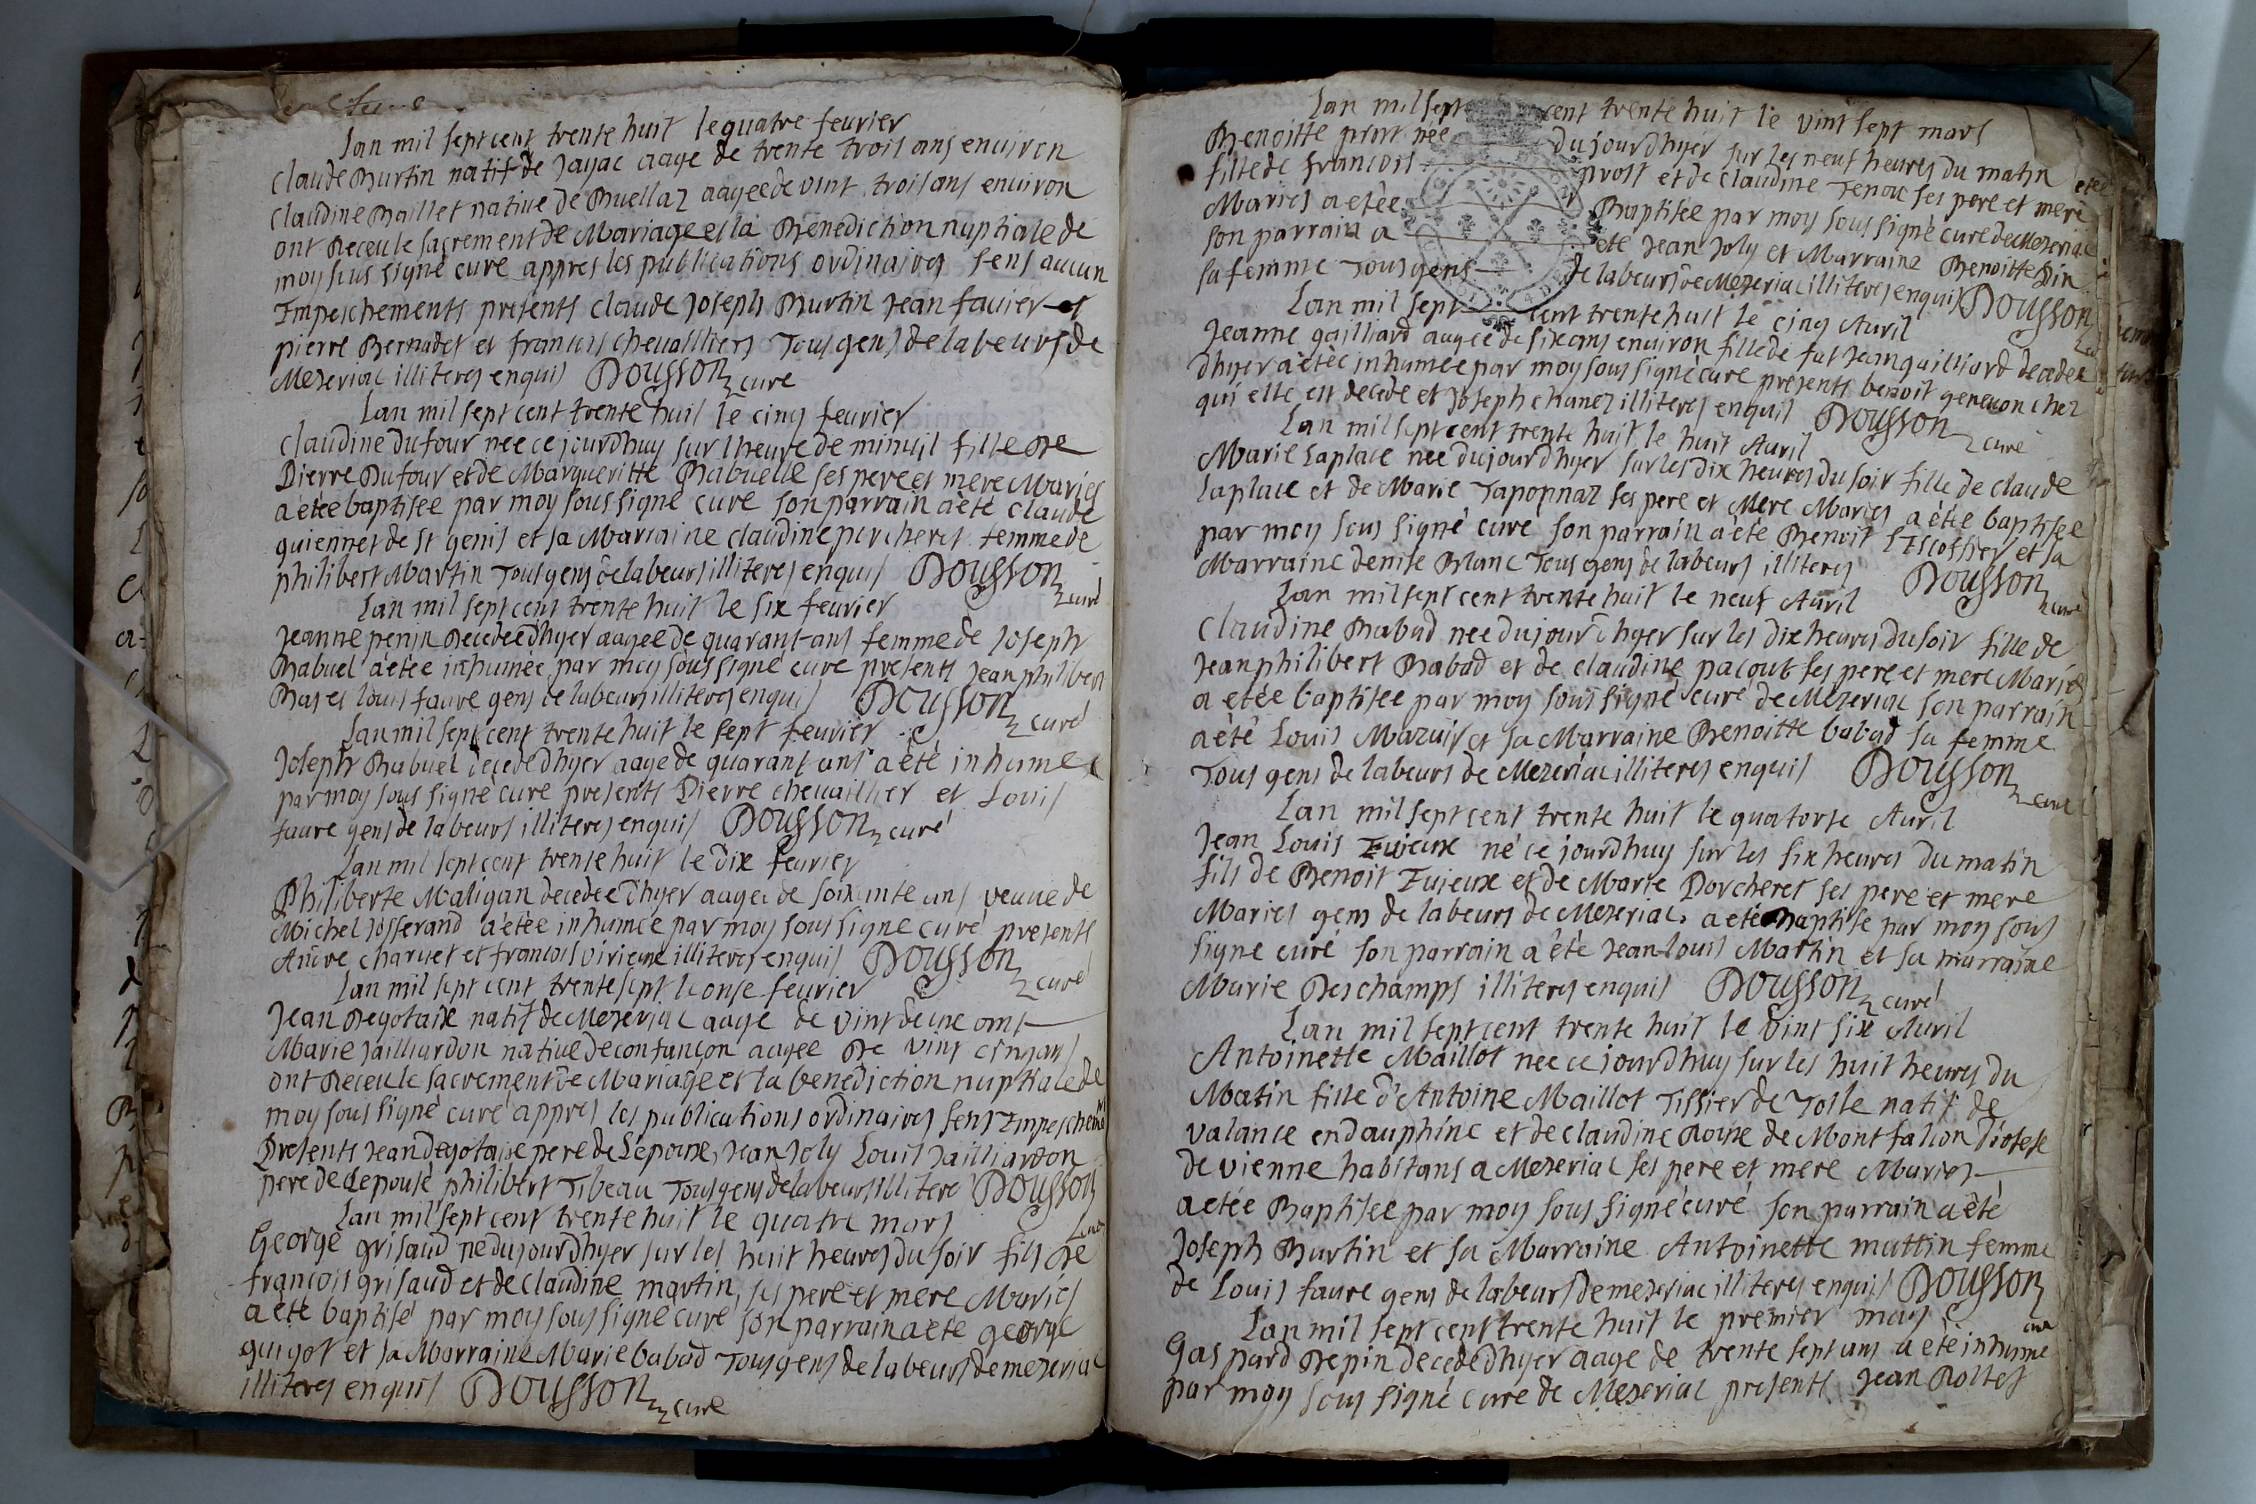 Lan mil sept cent trente huit le quatre feurier
Claude Burtin natif de Jayac aage de trente trois ans environ
Claudine Baillet natiue de Buellaz aagee de vint trois ans environ
ont Receu le sacrement de Mariage et la Benediction nuptiale de
moy sous signé curé appres les publications ordinaires sens aucun
Impeschements presents Claude Joseph Burtin Jean fauier et
pierre Bernadet et francois cheuallliers Tous gens de labeurs de
Meseriac illiteres enquis Dousson curé
Lan mil sept cent trente huit le cinq feurier
Claudine dufour nee ce jourdhuy sur lheure de minuit fille De
Pierre Dufour et de Margueritte Babuelle ses pere et mere Mariés
a étée baptisee par moy sous signé curé son parrain a été Claude
guiennet de st genis et sa Marraine Claudine porcheret femme de
philibert Martin Tous gens de labeurs illiteres enquis Dousson curé
Lan mil sept cent trente huit le six feurier
Jeanne penin Decedee dhyer aagee de quarant ans femme de Joseph
Babuel a étée inhumée par moy sous signé curé presents Jean philibert
Bas et louis faure gens de labeurs illiteres enquis Dousson curé
Lan mil sept cent trente huit le sept feurier
Joseph Babuel decede dhyer aage de quarant ans a été inhumé
par moy sous signé curé presents Pierre cheuaillier et Louis
faure gens de labeurs illiteres enquis Dousson curé
Lan mil sept cent trente huit le Dix feurier
Philiberte Maligan decedee dhyer aagee de soixante ans veuue de
Michel Josserand a étée inhumée par moy sous signé curé presents
Andre charuet et francois virieux illiteres enquis Dousson curé
Lan mil sept cent trente sept le onse feurier
Jean Degotaix natif de Meseriac aagé de vint deux ans
Marie Jailliardon natiue de confançon aagee De vint cinq ans
ont Receu le sacrement de Mariage et la benediction nuptiale de
moy sous signé curé appres les publications ordinaires sens Impeschem
Presents Jean degotaise pere de Lepoux, Jean Joly Louis Jailliardon
pere de Lepouse philibert Tibeau Tous gens de labeurs illitere Dousson
Lan mil sept cent trente huit le quatre mars
George grisaud ne du jourdhyer sur les huit heures du soir fils De
francois grisaud et de claudine martin, ses pere et mere Mariés
a été baptisé par moy sous signé curé son parrain a été george
guigot et sa Marraine Marie babad Tous gens de labeurs de meseriac
illiteres enquis Dousson curé
Lan mil sept cent trente huit le vint sept mars
Benoitte prost née du jourdhyer sur les neuf heures du matin
fille de francois prost et de Claudine Tenoux ses pere et mere
Mariés a étée Baptisée par moy sous signé curé de Meseriac
son parrain a été Jean Joly et Marraine Benoitte
sa femme Tous gens de labeurs de Meseriac illiteres enquis Dousson
Lan mil sept cent trente huit le cinq Auril
Jeanne gailliard aagée de six ans environ fille de fut Jean gailliard decedee
dhyer a étée inhumée par moy sous signé curé presents benoit geneuon chez
qui elle est decede et Joseph chanez illiteres enquis Dousson curé
Lan mil sept cent trente huit le huit Auril
Marie Laplace nee du jourdhyer sur les dix heures du soir fille de Claude
Laplace et de Marie Taponnaz ses pere et Mere Mariés a étée baptisée
par moy sous signé curé son parrain a été Benoit L'Escoffier et sa
Marraine denise Blanc Tous gens de labeurs illiteres Dousson curé
Lan mil sept cent trente huit le neuf Auril
Claudine Babad nee du jourdhyer sur les dix heures du soir fille de
Jean philibert Babad et de claudine pacout ses pere et mere Mariés
a étée baptisée par moy sous signé curé de Meseriac son parrain
a été Louis Mazuir et sa Marraine Benoitte babad sa femme
Tous gens de labeurs de Meseriac illiteres enquis Dousson curé
Lan mil sept cent trente huit le quatorse Auril
Jean Louis Fujeux né ce jourdhuy sur les six heures du matin
fils de Benoit Fujeux et de Marie Porcheret ses pere et mere
Mariés gens de labeurs de Meseriac, a été Baptisé par moy sous
signe curé son parrain a été Jean-Louis Martin et sa marraine
Marie Deschamps illiteres enquis Dousson curé
Lan mil sept cent trente huit le vint six Auril
Antoinette Maillot nee ce jourdhuy sur les huit heures du
Matin fille d'Antoine Maillot Tissier de Toile natif de
valance en dauphiné et de claudine Roux de Montfalion diosese
de vienne habitans a Meserial ses pere et mere Mariés
a étée Baptisée par moy sous signé curé son parrain a été
Joseph Burtin et sa Marraine Antoinette mattin femme
de Louis faure gens de labeurs de meseriac illiteres enquis Dousson
Lan mil sept cent trente huit le premier may
Gaspard Repin decede dhyer aage de trente sept ans a été inhumé
par moy sous signé curé de Meserial presents Jean Poltet